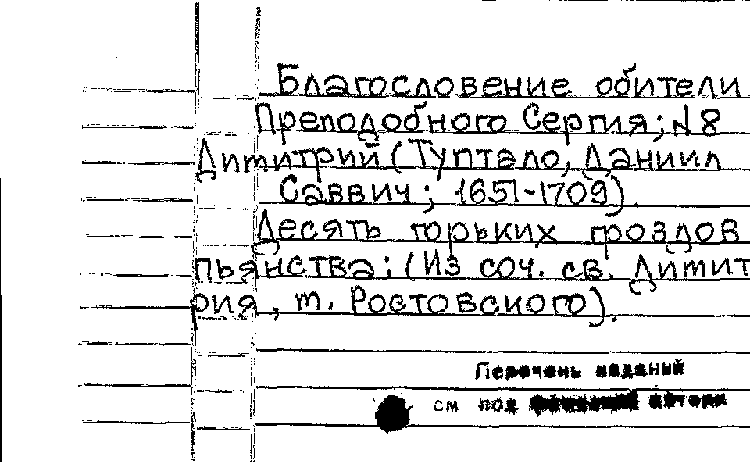 Благословение обители
Преподобного Сергия; N 8
Димитрий (Туптало, Даниил
Саввич; 1651-1709).
Десять горьких гроздов
пьянства: (Из соч. св. Димит
рия, м. Ростовского).
Перечень изданий
см под автора